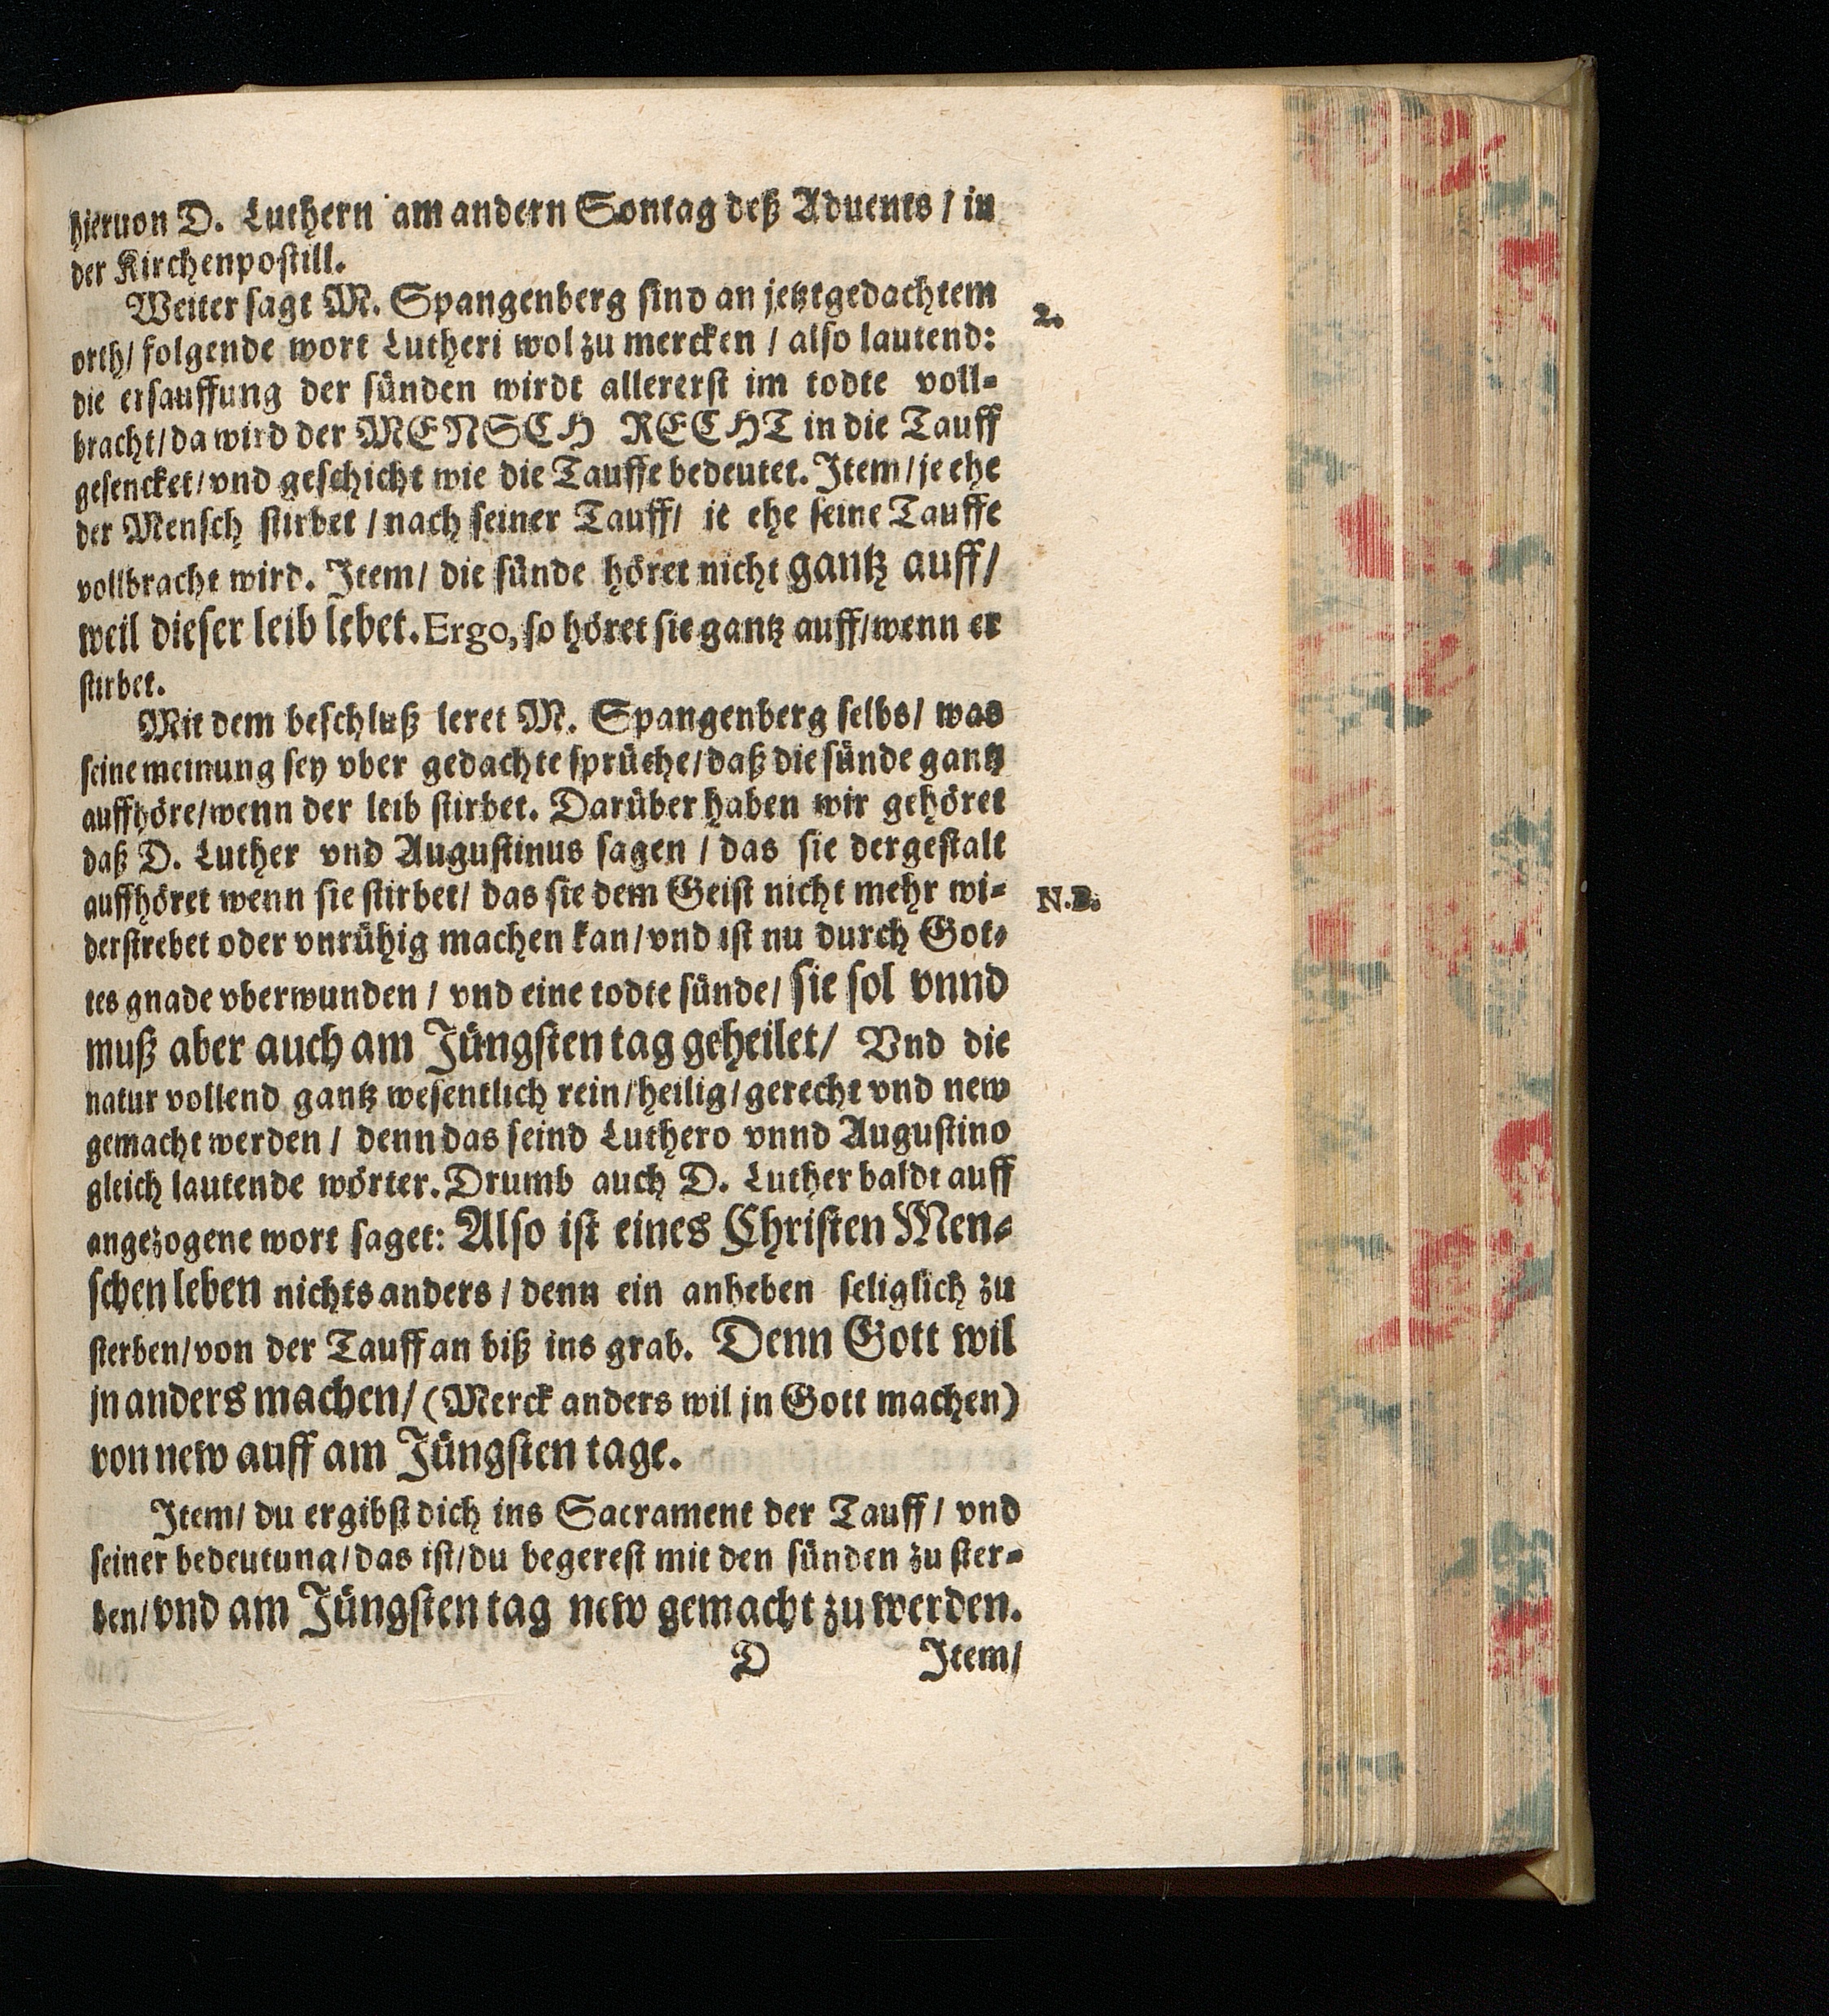 hieruon D. Luthern am andern Sontag deß Aduents / in
der Kirchenpostill.
Weiter sagt M. Spangenberg sind an jetztgedachtem
2.
orth/ folgende wort Lutheri wol zu mercken / also lautend:
die ersauffung der sünden wirdt allererst im todte voll-
bracht/ da wird der MENSCH RECHT in die Tauff
gesencket/ vnd geschicht wie die Tauffe bedeutet. Item/ je ehe
der Mensch stirbet / nach seiner Tauff/ je ehe seine Tauffe
vollbracht wird. Item/ die sünde höret nicht gantz auff/
weil dieser leib lebet. Ergo, so höret sie gantz auff/ wenn er
stirbet.
Mit dem beschluß leret M. Spangenberg selbs/ was
seine meinung sey vber gedachte sprüche/ daß die sünde gantz
auffhöre/ wenn der leib stirbet. Darüber haben wir gehöret
daß D. Luther vnd Augustinus sagen / das sie dergestalt
auffhöret wenn sie stirbet/ das sie dem Geist nicht mehr wi-
N.B.
derstrebet oder vnrühig machen kan/ vnd ist nu durch Got-
tes gnade vberwunden / vnd eine todte sünde/ sie sol vnnd
muß aber auch am Jüngsten tag geheilet/ Vnd die
natur vollend gantz wesentlich rein/ heilig/ gerecht vnd new
gemacht werden / denn das seind Luthero vnnd Augustino
gleich lautende wörter. Drumb auch D. Luther baldt auff
angezogene wort saget: Also ist eines Christen Men-
schen leben nichts anders / denn ein anheben seliglich zu
sterben/ von der Tauff an biß ins grab. Denn Gott wil
jn anders machen/ (Merck anders wil jn Gott machen)
von new auff am Jüngsten tage.
Item/ du ergibst dich ins Sacrament der Tauff / vnd
seiner bedeutung/ das ist/ du begerest mit den sünden zu ster-
ben/ vnd am Jüngsten tag new gemacht zu werden.
D Item/